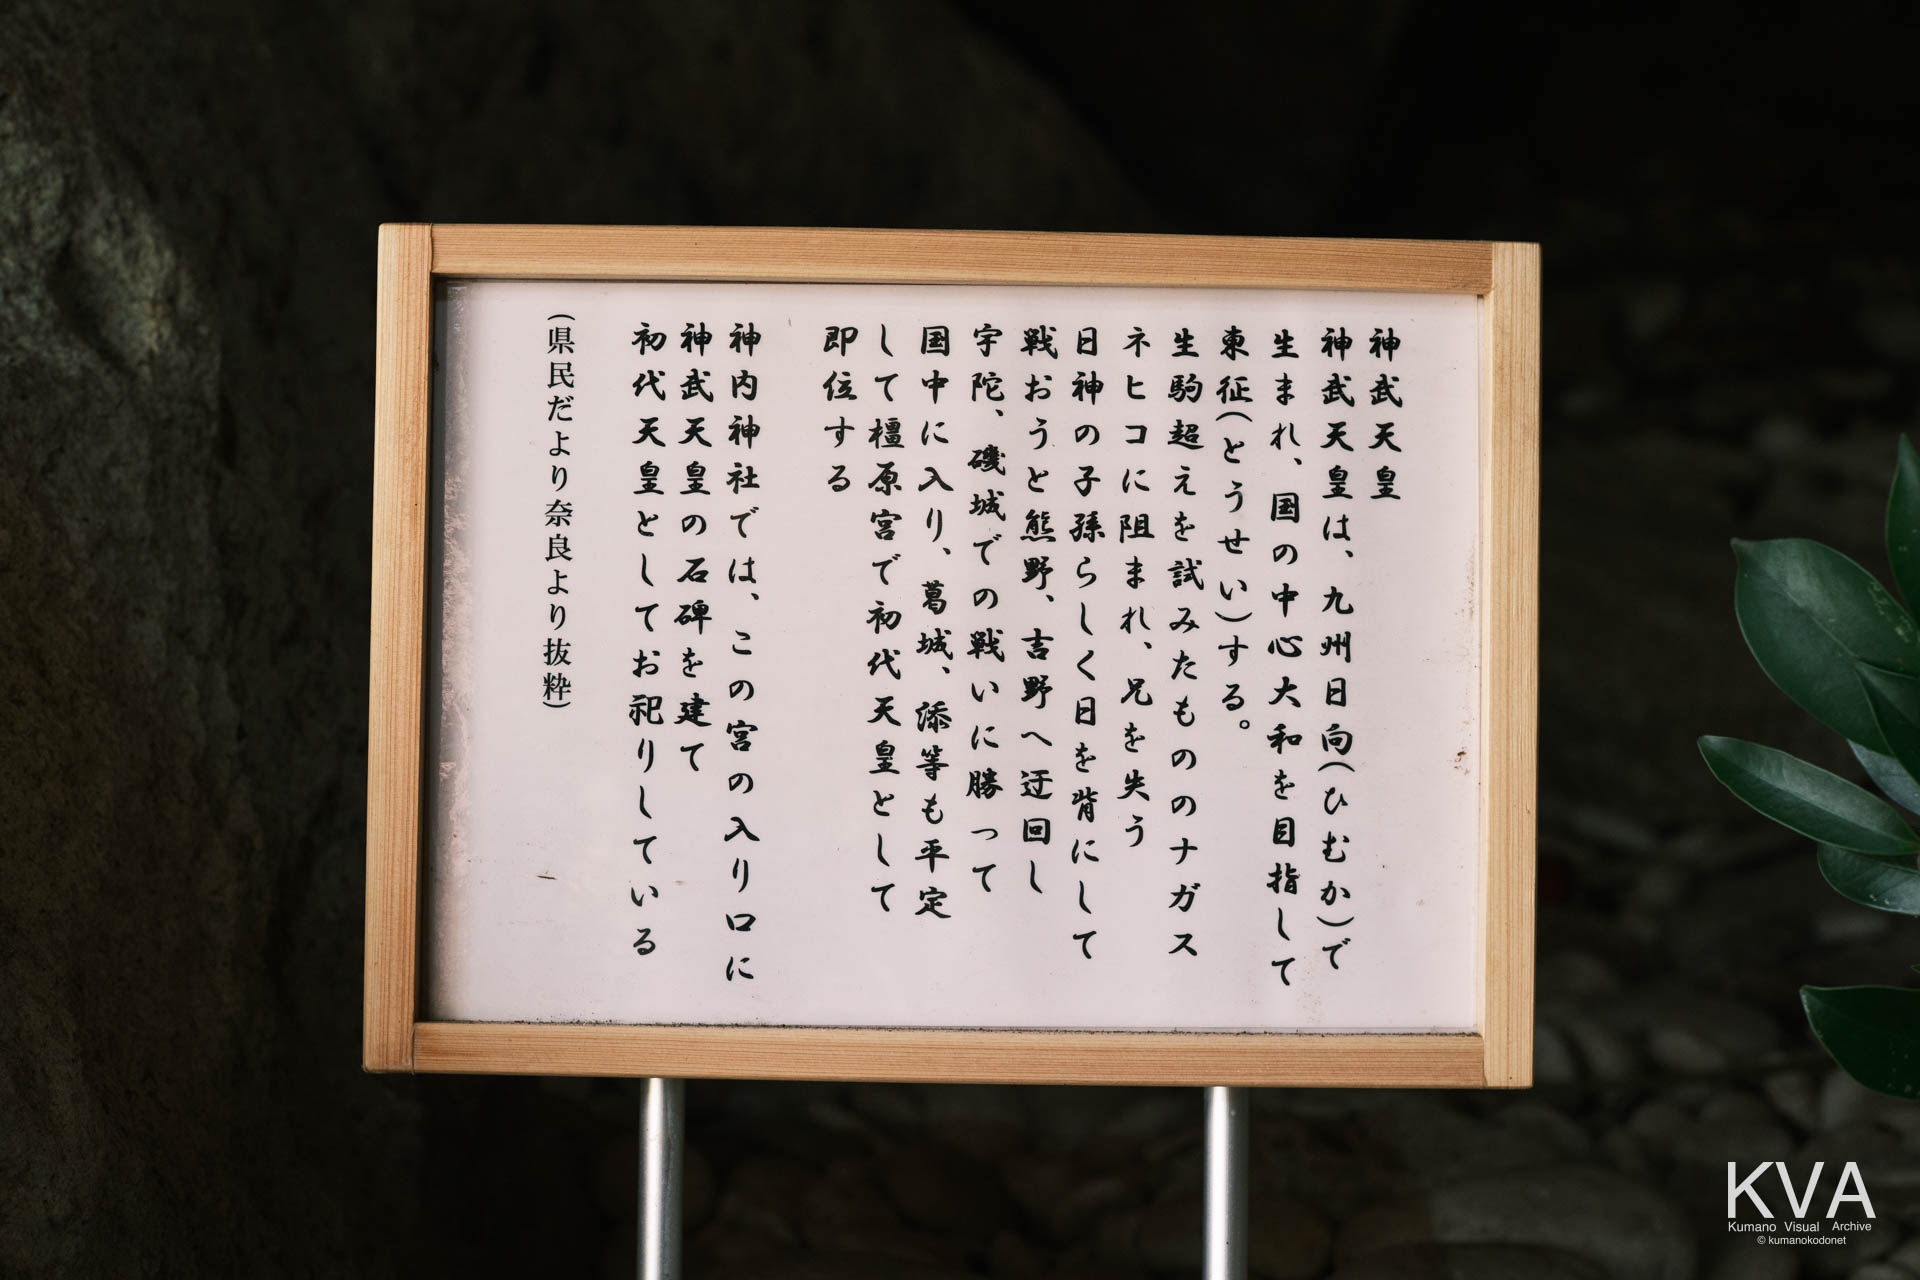 神武天皇
神武天皇は、九州日向(ひむか)で
生まれ、国の中心大和を目指して
東征(とうせい)する。
生駒超えを試みたもののナガス
ネヒコに阻まれ、兄を失う
日神の子孫らしく日を背にして
戦おうと熊野、吉野へ迂回し
宇陀、磯城での戦いに勝って
国中に入り、葛城、添等も平定
して橿原宮で初代天皇として
即位する
神内神社では、この宮の入り口に
神武天皇の石碑を建て
初代天皇としてお祀りしている
(県民だより奈良より抜粋)
KVA
Kumano Visual Archive
© kumanokodonet